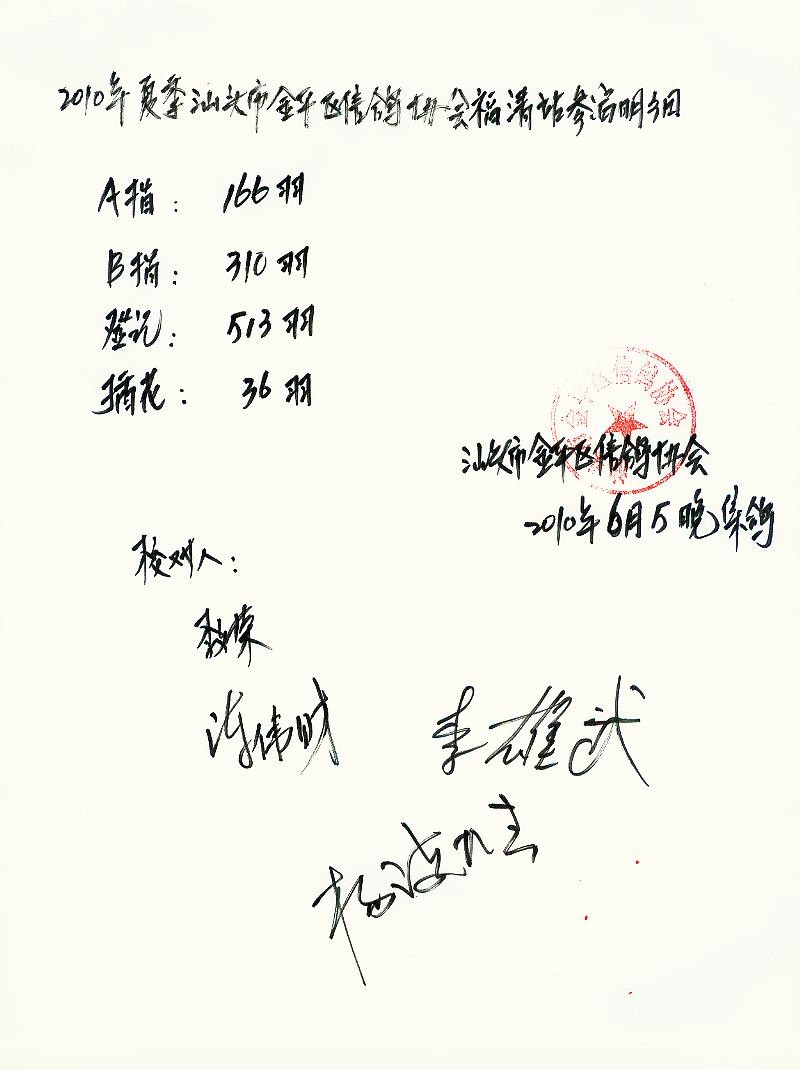 2010年夏季汕头市金平区信鸽协会福清站参赛明细
A指: 166羽
B指: 310羽
登记: 513羽
插花: 36羽
金平区信鸽协会
汕头市金平区信鸽协会
2010年6月5晚集鸽
校对人:
陈伟财 李雄武